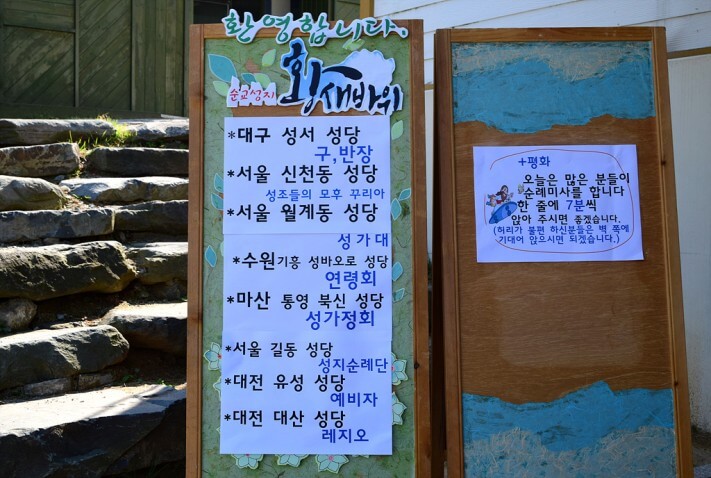 환영합니다.
순교성지
황새바위
*대구 성서 성당
구,반장
*서울 신천동 성당
성조들의 모후 꾸리아
*서울 월계동 성당
성가대
*수원기흥 성바오로 성당
연령회
*마산 통영 북신 성당
성가정회
*서울 길동 성당
성지순례단
*대전 유성 성당
예비자
*대전 대산 성당
레지오
+평화
오늘은 많은 분들이
순례미사를 합니다
한 줄에 7분씩
앉아 주시면 좋겠습니다.
(허리가 불편 하신분들은 벽 쪽에
기대어 앉으시면 되겠습니다.)